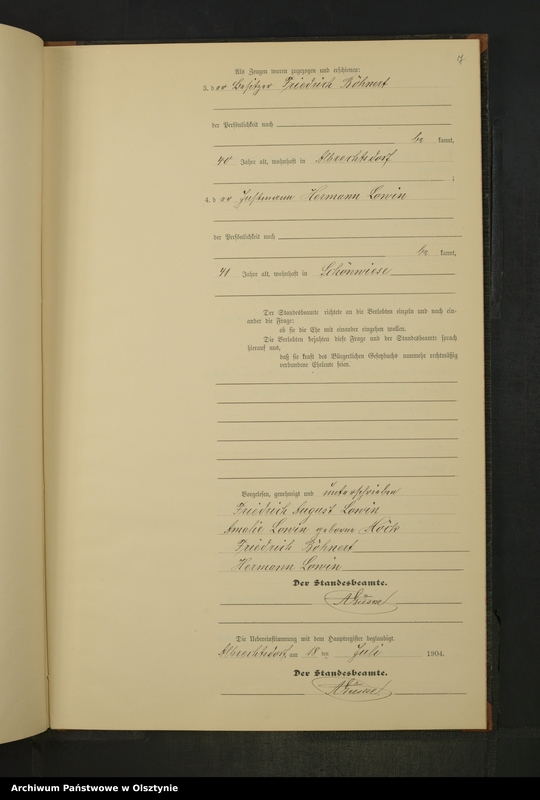 Als Zeugen waren zugezogen und erschienen:
3. der Besitzer Friedrich Böhnert
der Persönlichkeit nach
be kannt,
40 Jahre alt, wohnhaft in Albrechtsdorf
;
4. der Instmann Hermann Lowin
der Persönlichkeit nach
be kannt,
41 Jahre alt, wohnhaft in Schönwiese
Der Standesbeamte richtete an die Verlobten einzeln und nach ein-
ander die Frage:
ob sie die Ehe mit einander eingehen wollen.
Die Verlobten bejahten diese Frage und der Standesbeamte sprach
hierauf aus,
daß sie kraft des Bürgerlichen Gesetzbuchs nunmehr rechtmäßig
verbundene Eheleute seien.
Vorgelesen, genehmigt und unterschrieben
Friedrich August Lowin
Amalie Lowin geborene Höck
Friedrich Böhnert
Hermann Lowin
Der Standesbeamte.
Die Uebereinstimmung mit dem Hauptregister beglaubigt.
Albrechtsdorf, am 18 ten Juli 1904.
Der Standesbeamte.
Archiwum Państwowe w Olsztynie